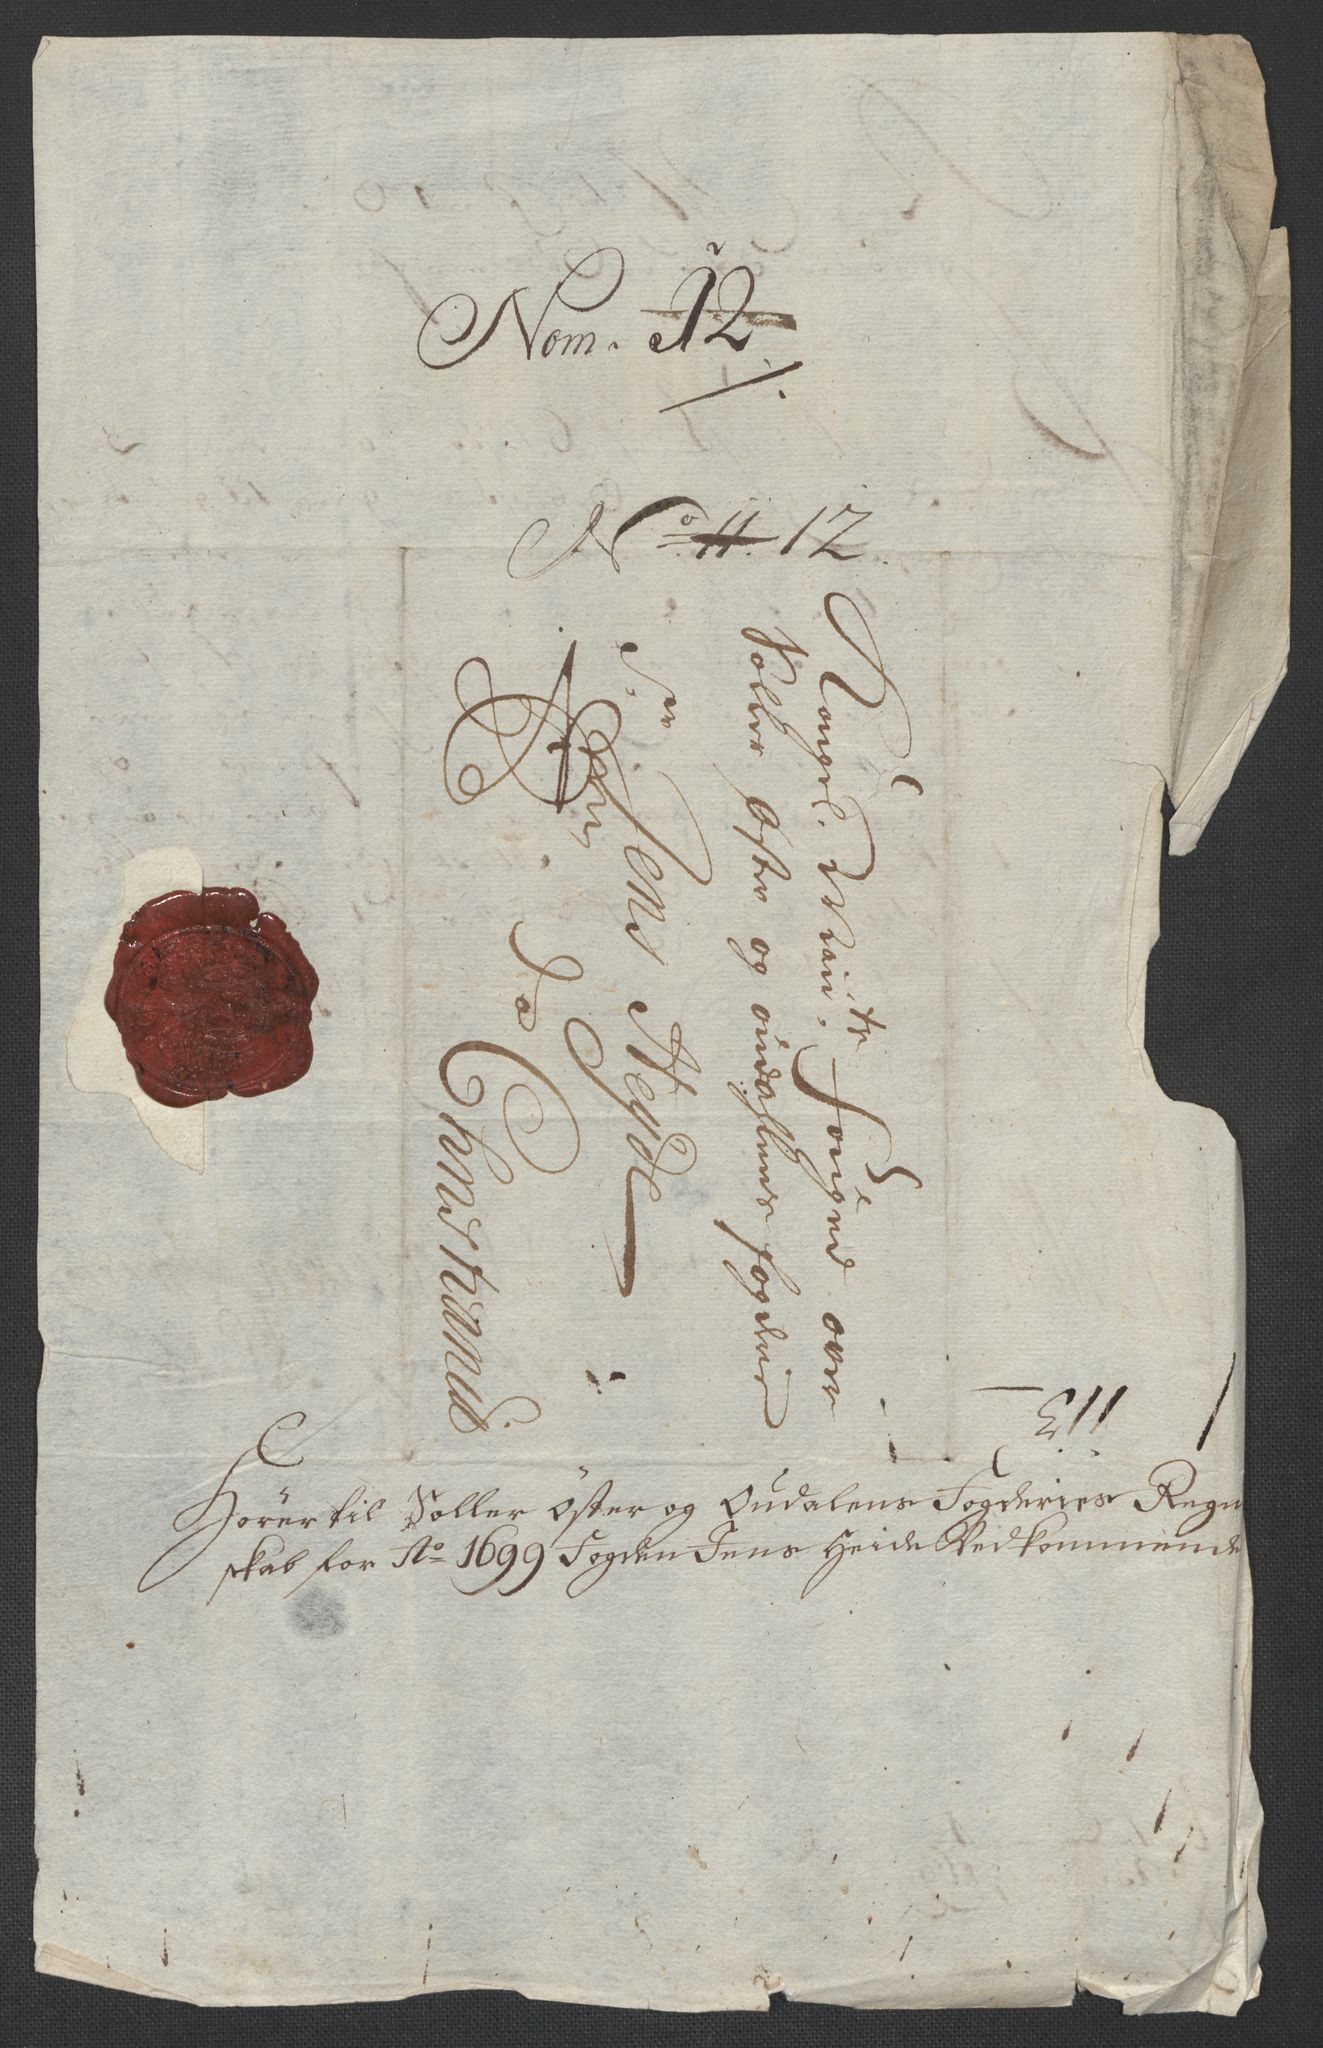 Nom. 12
/.
No 11. 12
Kongl. Maits. Foúged over
Soller Øster og oúdahlens fogderi
Sr Jens Heyde
Paa Christiania
113
Hörer til Soller Öster og Oudalens Fogderies Regn
skab for Ao 1699 Fogden Jens Heide Vedkommende